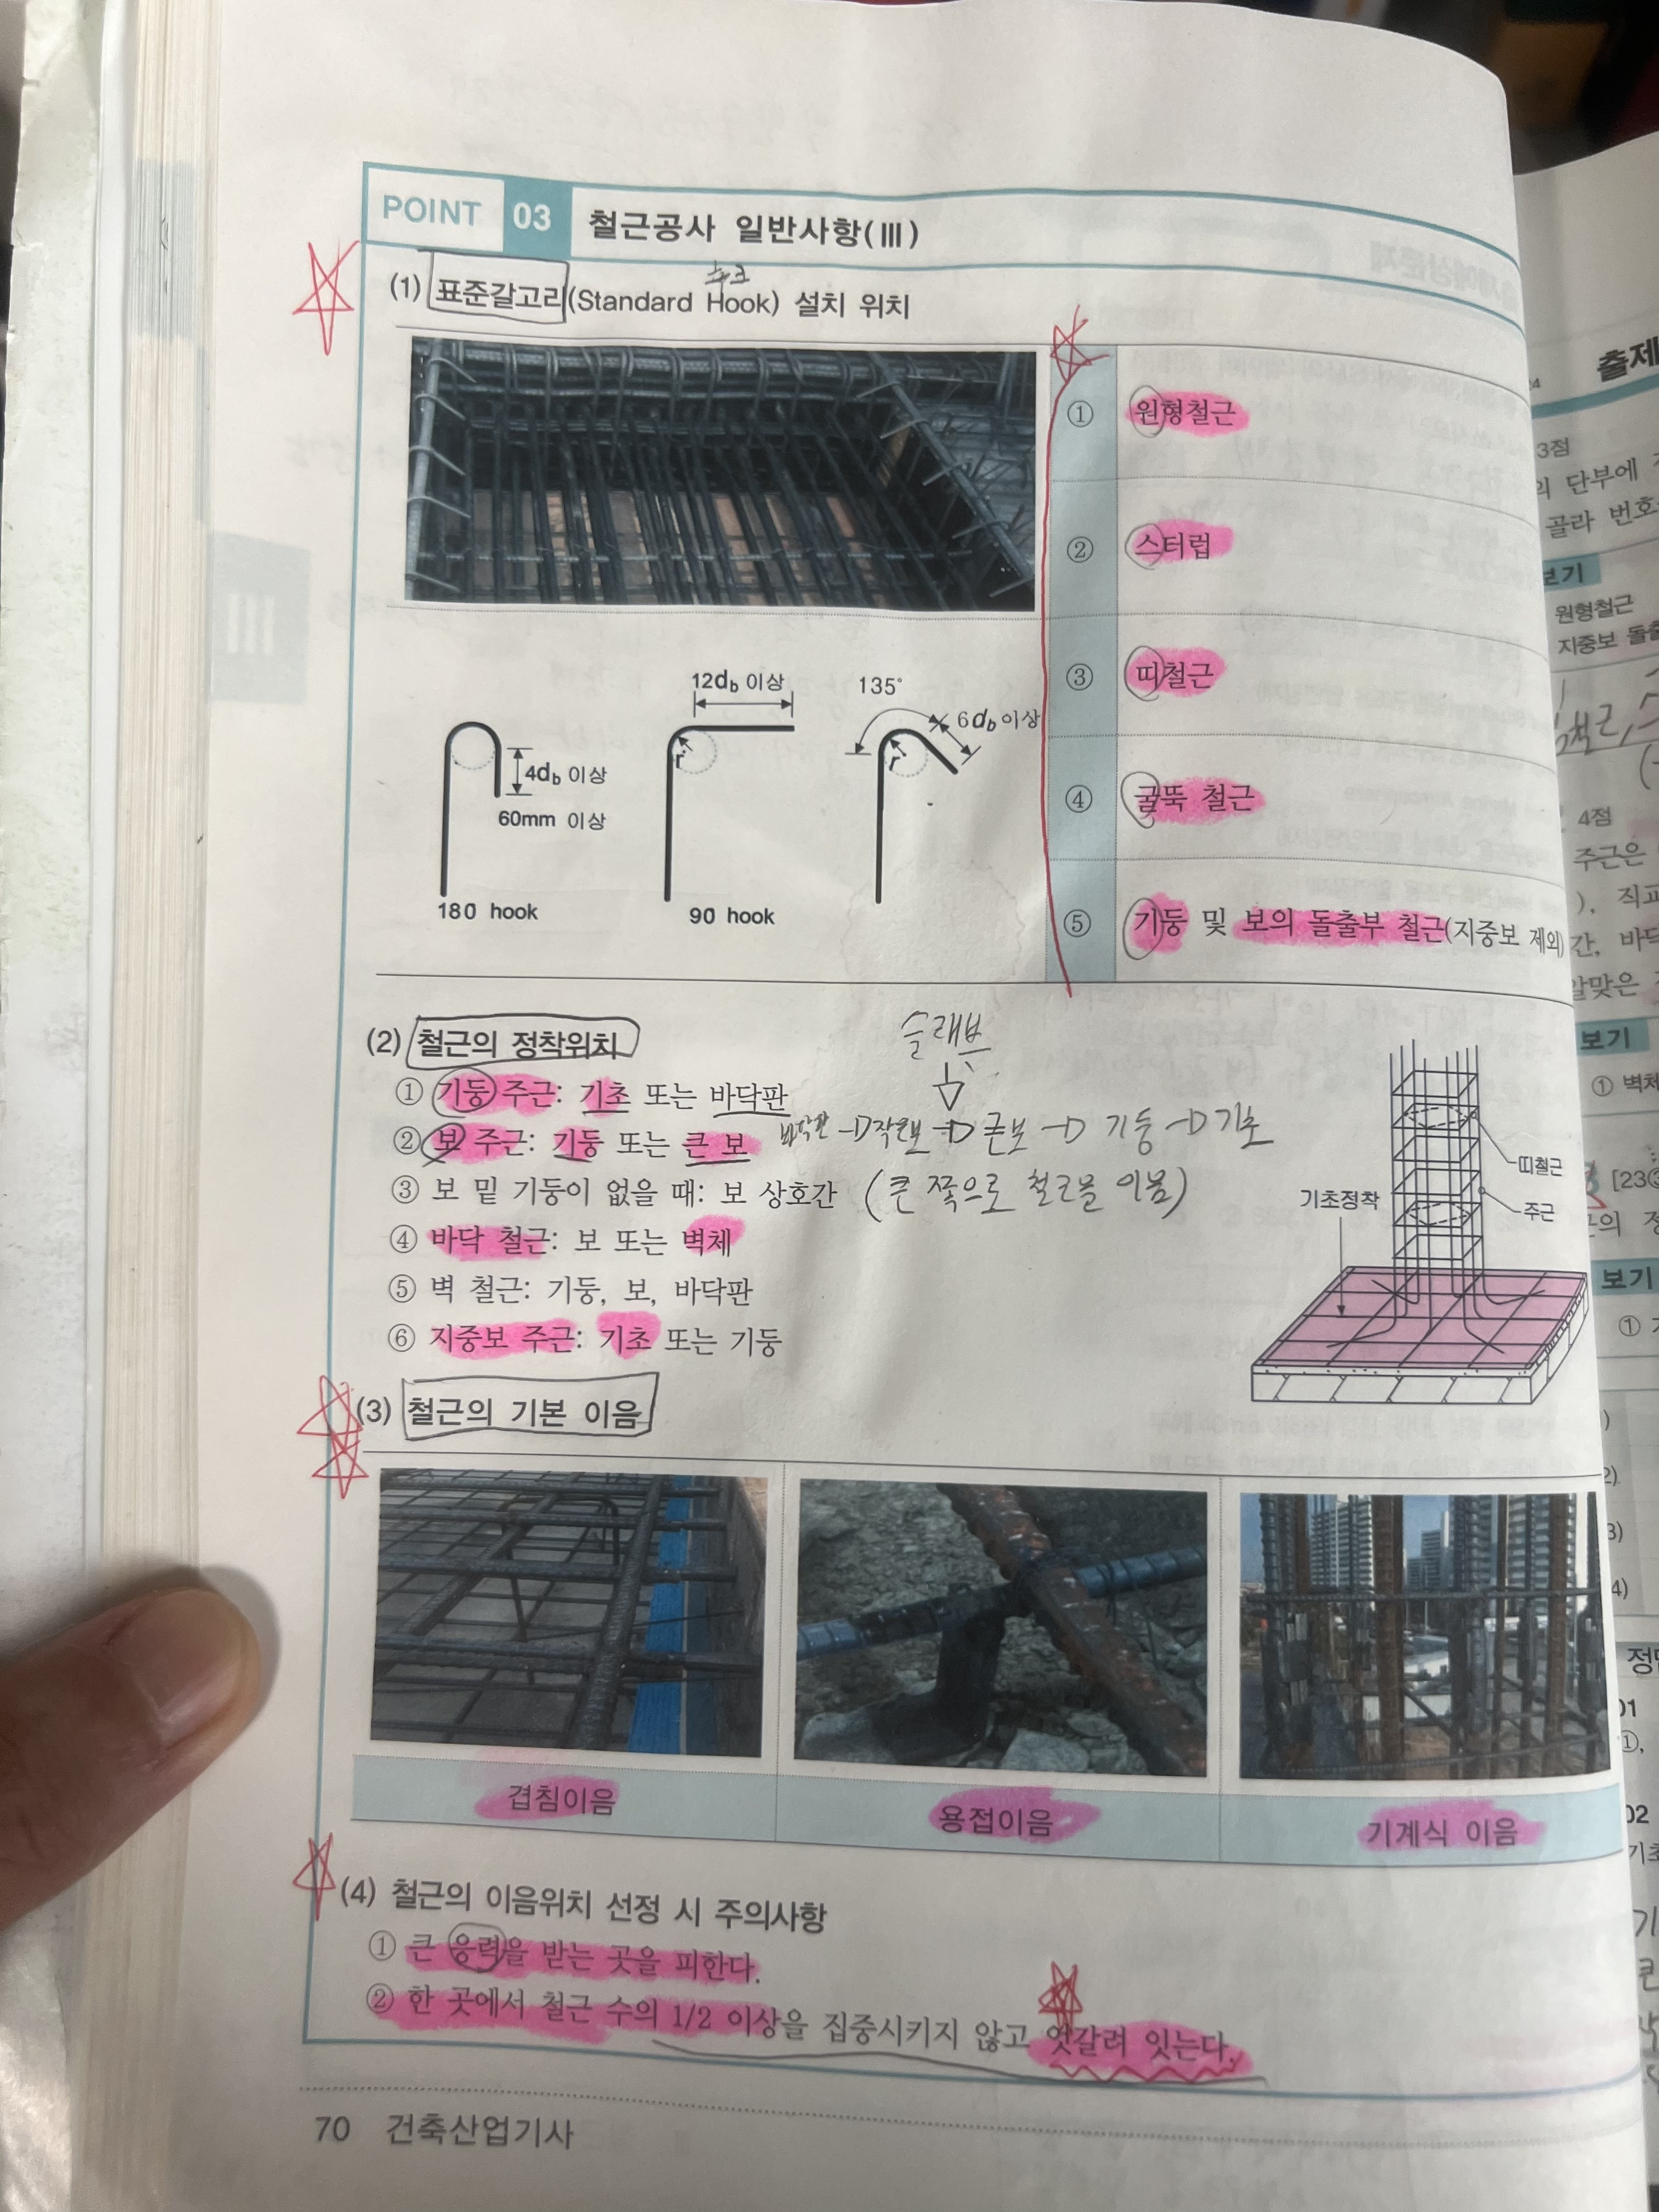 POINT 03 철근공사 일반사항(Ⅲ)
후크
(1) 표준갈고리(Standard Hook) 설치 위치
① 원형철근
② 스터럽
③ 띠철근
④ 굴뚝 철근
⑤ 기둥 및 보의 돌출부 철근(지중보 제외)
4db 이상
60mm 이상
180 hook
12db 이상
r
90 hook
135°
6db 이상
r
(2) 철근의 정착위치
① 기둥 주근: 기초 또는 바닥판
② 보 주근: 기둥 또는 큰 보
③ 보 밑 기둥이 없을 때: 보 상호간
④ 바닥 철근: 보 또는 벽체
⑤ 벽 철근: 기둥, 보, 바닥판
⑥ 지중보 주근: 기초 또는 기둥
슬래브
바닥판 작은보 큰보 기둥 기초
(큰 쪽으로 철근을 이음)
기초정착
띠철근
주근
(3) 철근의 기본 이음
겹침이음
용접이음
기계식 이음
(4) 철근의 이음위치 선정 시 주의사항
① 큰 응력을 받는 곳을 피한다.
② 한 곳에서 철근 수의 1/2 이상을 집중시키지 않고 엇갈려 잇는다.
70 건축산업기사
Ⅲ
출제
3점
의 단부에
골라 번호
보기
원형철근
지중보 돌출
4점
주근은
), 직교
간, 바닥
알맞은
보기
① 벽체
[23
근의 정
보기
①
2)
3)
4)
01
①,
02
기초